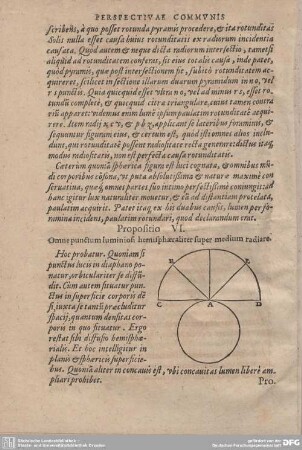 PERSPECTIVAE COMMVNIS
scribens, à quo posset rotunda pyramis procedere, & ita rotunditas
Solis nulla esset causa huius rotunditatis ex radiorum incidentia
causata. Quod autem & neque dicta radiorum intersectio, tametsi
aliquid ad rotunditatem conferat, sic eius tocalis causa, inde patet,
quòd pyramis, quæ post intersectionem sit, subitò rotunditatem ac-
quireret, scilicet in sectione illarum duarum pyramidum in o, vel
r s punctis. Quia quicquid esset vltra o, vel ad minus r s, esset ro-
tundū complete, & quicquid citra triangulare, cuius tamen contra-
rii apparet: videmus enim lumē ipsum paulatim rotunditatē acqui-
rere.
sequuntur figuram eius, & certum est, quòd iste omnes alios inclu-
dunt, qui rotunditatē possent radiositate recta generare: dictus itaq;
modus radiositatis, non est perfecta causa rotunditatis.
Cæterum quoniā sphærica figura est luci cognata, & omnibus mū-
di corporibus cōsona, vt puta absolutissima & naturæ maximè con-
seruatiua, quoq; omnes partes suo intimo perfectissimè coniungit: ad
hanc igitur lux naturaliter mouetur, & eā ad distantiam protelata,
paulatim acquirit. Patet itaq; ex his duabus causis, lumen per fo-
ramina incidens, paulatim rotundari, quod declarandum erat.
Propositio VI.
Omne punctum luminosi hemisphæraliter super medium radiare.
Hoc probatur. Quoniam si
punctus lucis in diaphano po-
natur, orbiculariter se diffū-
dit. Cùm autem situatur pun-
ctus in superficie corporis dē-
si, iuxta se tanti præcluditur
spacij, quantum densitas cor-
poris in quo situatur. Ergo
restat sibi diffusio hemisphæ-
rialis. Et hoc intelligitur in
planis & sphæricis superficie-
E
C A D
bus. Quoniā aliter in concauis est, vbi concauitas lumen liberè am-
pliari prohibet.
Pro.
Sächsische Landesbibliothek -
Staats- und Universitätsbibliothek Dresden
gefördert von der
Deutschen Forschungsgemeinschaft
DFG